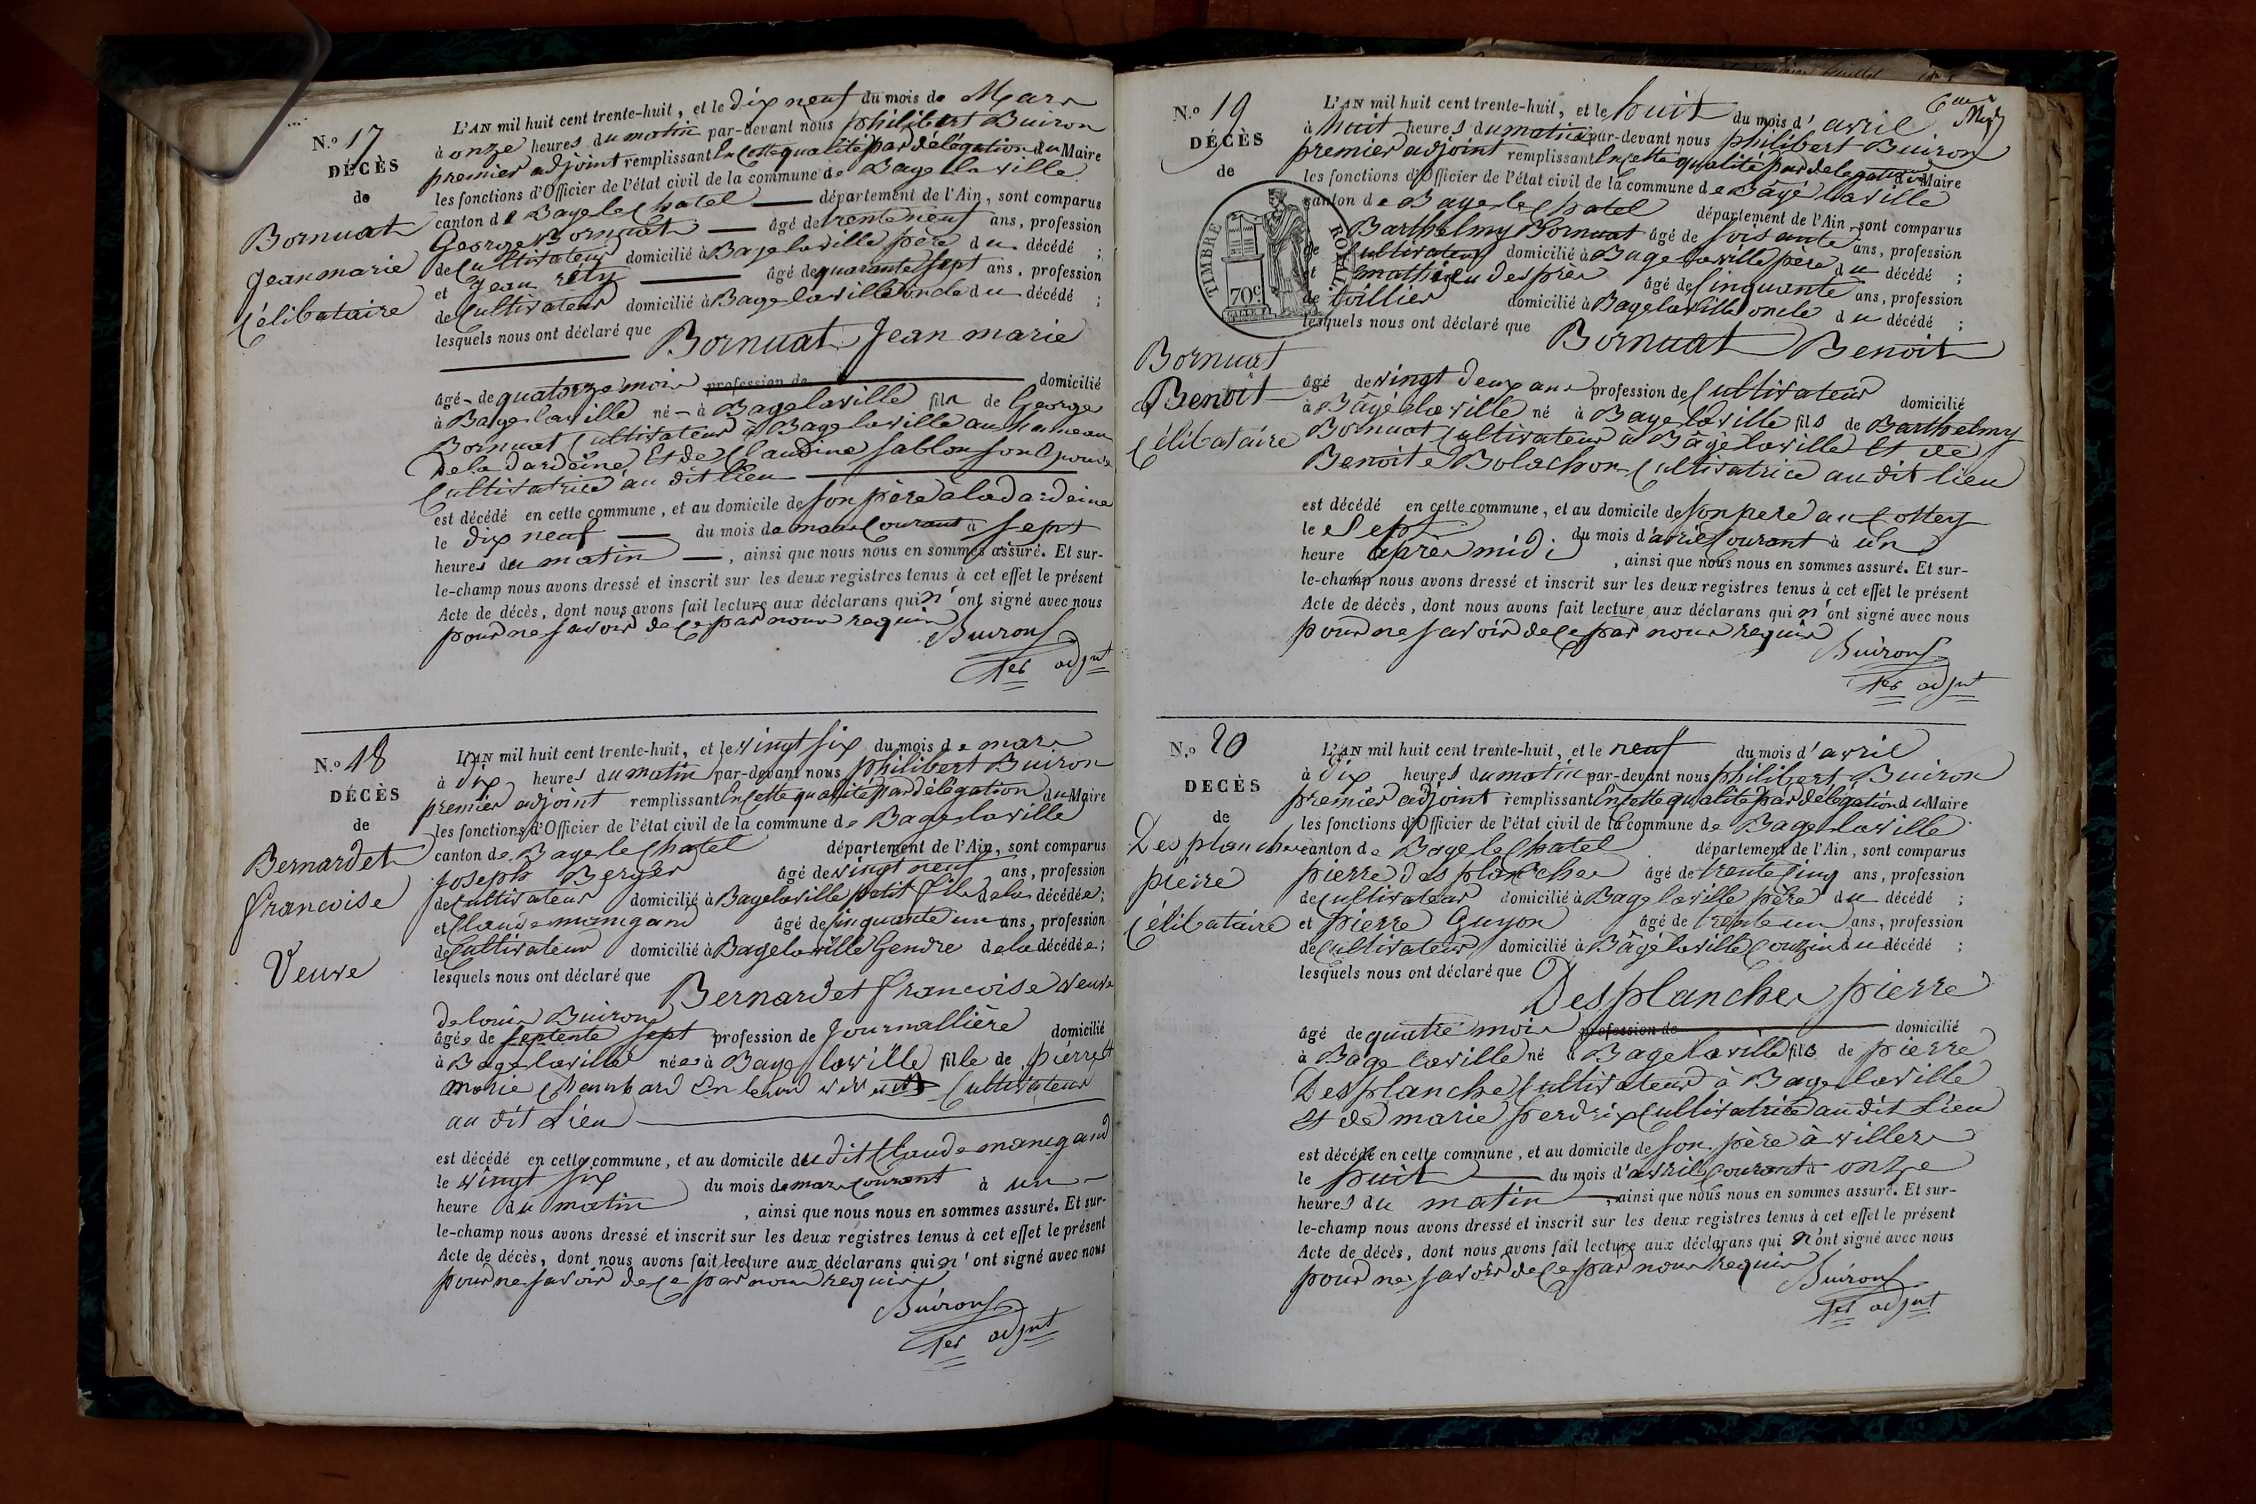 N.o 17
DÉCÈS
de
Bornuat
Jean marie
Célibataire
L'AN mil huit cent trente-huit, et le dix neuf du mois de Mars
à onze heures du matin par-devant nous philibert Buiron
premier adjoint remplissant En cette qualité par délégation du Maire
les fonctions d'Officier de l'état civil de la commune de Bage la ville
canton de Bage le Chatel département de l'Ain, sont comparus
George Bornuat âgé de trente neuf ans, profession
de Cultivateur domicilié à Bage la ville père du décédé ;
et Jean réty âgé de quarante sept ans, profession
de Cultivateur domicilié à Bage la ville oncle du décédé ;
lesquels nous ont déclaré que Bornuat Jean marie
âgé de quatorze mois profession de domicilié
à Bage la ville né à Bage la ville fils de George
Bornuat Cultivateur à Bage la ville au hameau
de la dardeine Et de Claudine sablon son Epouse
Cultivatrice au dit lieu
est décédé en cette commune, et au domicile de son père à la dardeine
le dix neuf du mois de mars Courant à sept
heures du matin, ainsi que nous nous en sommes assuré. Et sur-
le-champ nous avons dressé et inscrit sur les deux registres tenus à cet effet le présent
Acte de décès, dont nous avons fait lecture aux déclarans qui n'ont signé avec nous
pour ne savoir de Ce par nous requis
Buiron
1er adjnt
N.o 18
DÉCÈS
de
Bernardet
francoise
Veuve
L'AN mil huit cent trente-huit, et le vingt six du mois de mars
à dix heures du matin par-devant nous philibert Buiron
premier adjoint remplissant En cette qualité par délégation du Maire
les fonctions d'Officier de l'état civil de la commune de Bage la ville
canton de Bage le Chatel département de l'Ain, sont comparus
Joseph Berger âgé de vingt neuf ans, profession
de Cultivateur domicilié à Bage la ville petit fils de la décédée ;
et Claude mamgand âgé de cinquante un ans, profession
de Cultivateur domicilié à Bage la ville Gendre de la décédée ;
lesquels nous ont déclaré que Bernardet francoise veuve
de louis Buiron
âgée de septente sept profession de Journallière domicilié
à Bage la ville née à Bage la ville fille de pierre et
marie Chambard En leur vivant Cultivateurs
au dit Lieu
est décédé en cette commune, et au domicile du dit Claude mamgand
le vingt six du mois de mars Courant à un
heure du matin, ainsi que nous nous en sommes assuré. Et sur-
le-champ nous avons dressé et inscrit sur les deux registres tenus à cet effet le présent
Acte de décès, dont nous avons fait lecture aux déclarans qui n'ont signé avec nous
pour ne savoir de Ce par nous requis
Buiron
1er adjnt
N.o 19
DÉCÈS
de
TIMBRE ROYAL
70c
Bornuat
Benoit
Célibataire
L'AN mil huit cent trente-huit, et le huit du mois d'avril
à huit heures du matin par-devant nous philibert Buiron
premier adjoint remplissant En cette qualité par délégation du Maire
les fonctions d'Officier de l'état civil de la commune de Bâgé la ville
canton de Bage le Chatel département de l'Ain, sont comparus
Barthelmy Bornuat âgé de soisante ans, profession
de Cultivateur domicilié à Bage la ville père du décédé ;
et mathieu desprès âgé de Cinquante ans, profession
de toillier domicilié à Bage la ville oncle du décédé ;
lesquels nous ont déclaré que Bornuat Benoit
âgé de vingt deux ans profession de Cultivateur domicilié
à Bâgé la ville né à Bage la ville fils de Barthelmy
Bornuat Cultivateur à Bâgé la ville Et de
Benoite Bolachon Cultivatrice au dit lieu
est décédé en cette commune, et au domicile de son père au Cottey
le Sept du mois d'avril Courant à un
heure après midi, ainsi que nous nous en sommes assuré. Et sur-
le-champ nous avons dressé et inscrit sur les deux registres tenus à cet effet le présent
Acte de décès, dont nous avons fait lecture aux déclarans qui n'ont signé avec nous
pour ne savoir de Ce par nous requis
Buiron
1er adjnt
N.o 20
DECÈS
de
Desplanche
pierre
Célibataire
L'AN mil huit cent trente-huit, et le neuf du mois d'avril
à dix heures du matin par-devant nous philibert Buiron
premier adjoint remplissant En cette qualité par délégation du Maire
les fonctions d'Officier de l'état civil de la commune de Bage la ville
canton de Bage le Chatel département de l'Ain, sont comparus
pierre des planches âgé de trente Cinq ans, profession
de Cultivateur domicilié à Bage la ville père du décédé ;
et pierre Guyon âgé de trente un ans, profession
de Cultivateur domicilié à Bâge la ville Couzin du décédé ;
lesquels nous ont déclaré que Desplanches pierre
âgé de quatre mois profession de domicilié
à Bage la ville né à Bage la ville fils de pierre
Desplanche Cultivateur à Bage la ville
Et de marie perdrix Cultivatrice au dit Lieu
est décédé en cette commune, et au domicile de son père à villers
le huit du mois d'avril Courant à onze
heures du matin, ainsi que nous nous en sommes assuré. Et sur-
le-champ nous avons dressé et inscrit sur les deux registres tenus à cet effet le présent
Acte de décès, dont nous avons fait lecture aux déclarans qui n'ont signé avec nous
pour ne savoir de Ce par nous requis
Buiron
1er adjnt